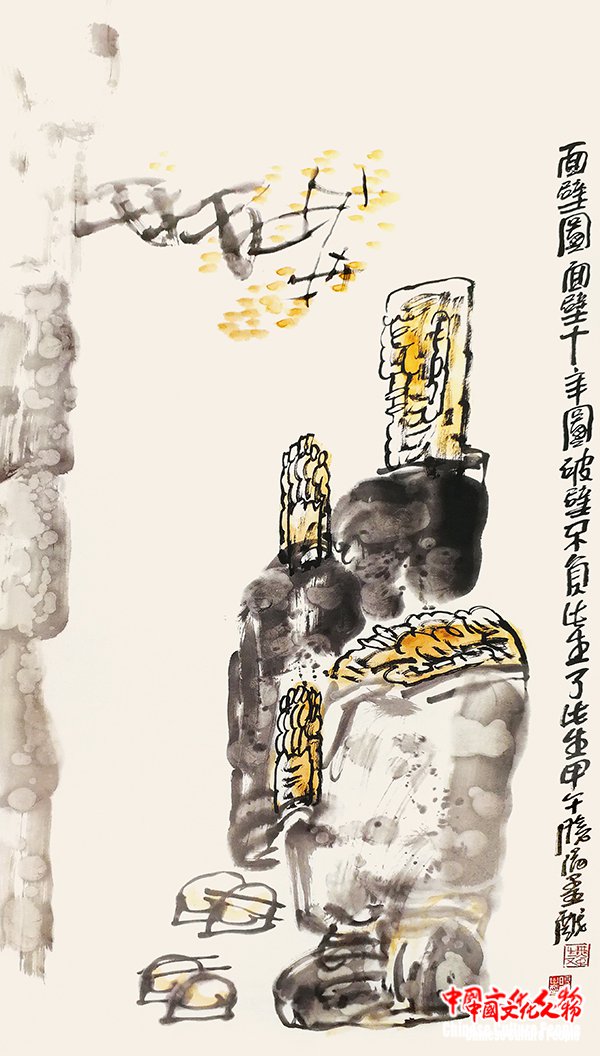 面壁圖面壁十年圖破壁不負此生了此生甲午墨戲
中國文化人物